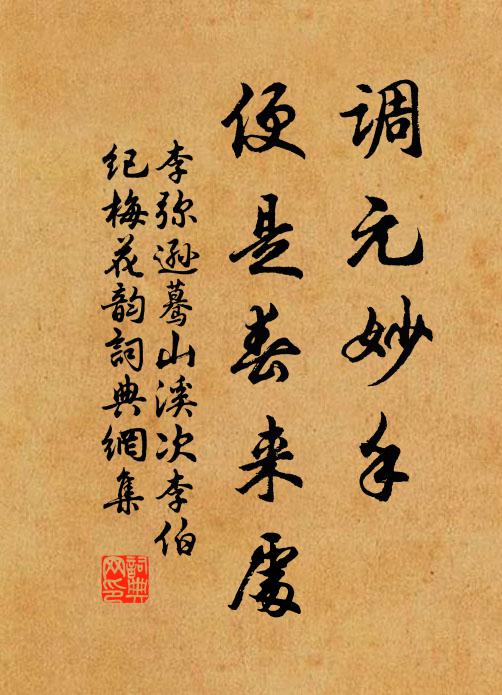 调元妙手
便是春来處
李弥遜蓦山溪次李伯
纪梅花韵詞典網集
詞典
网印